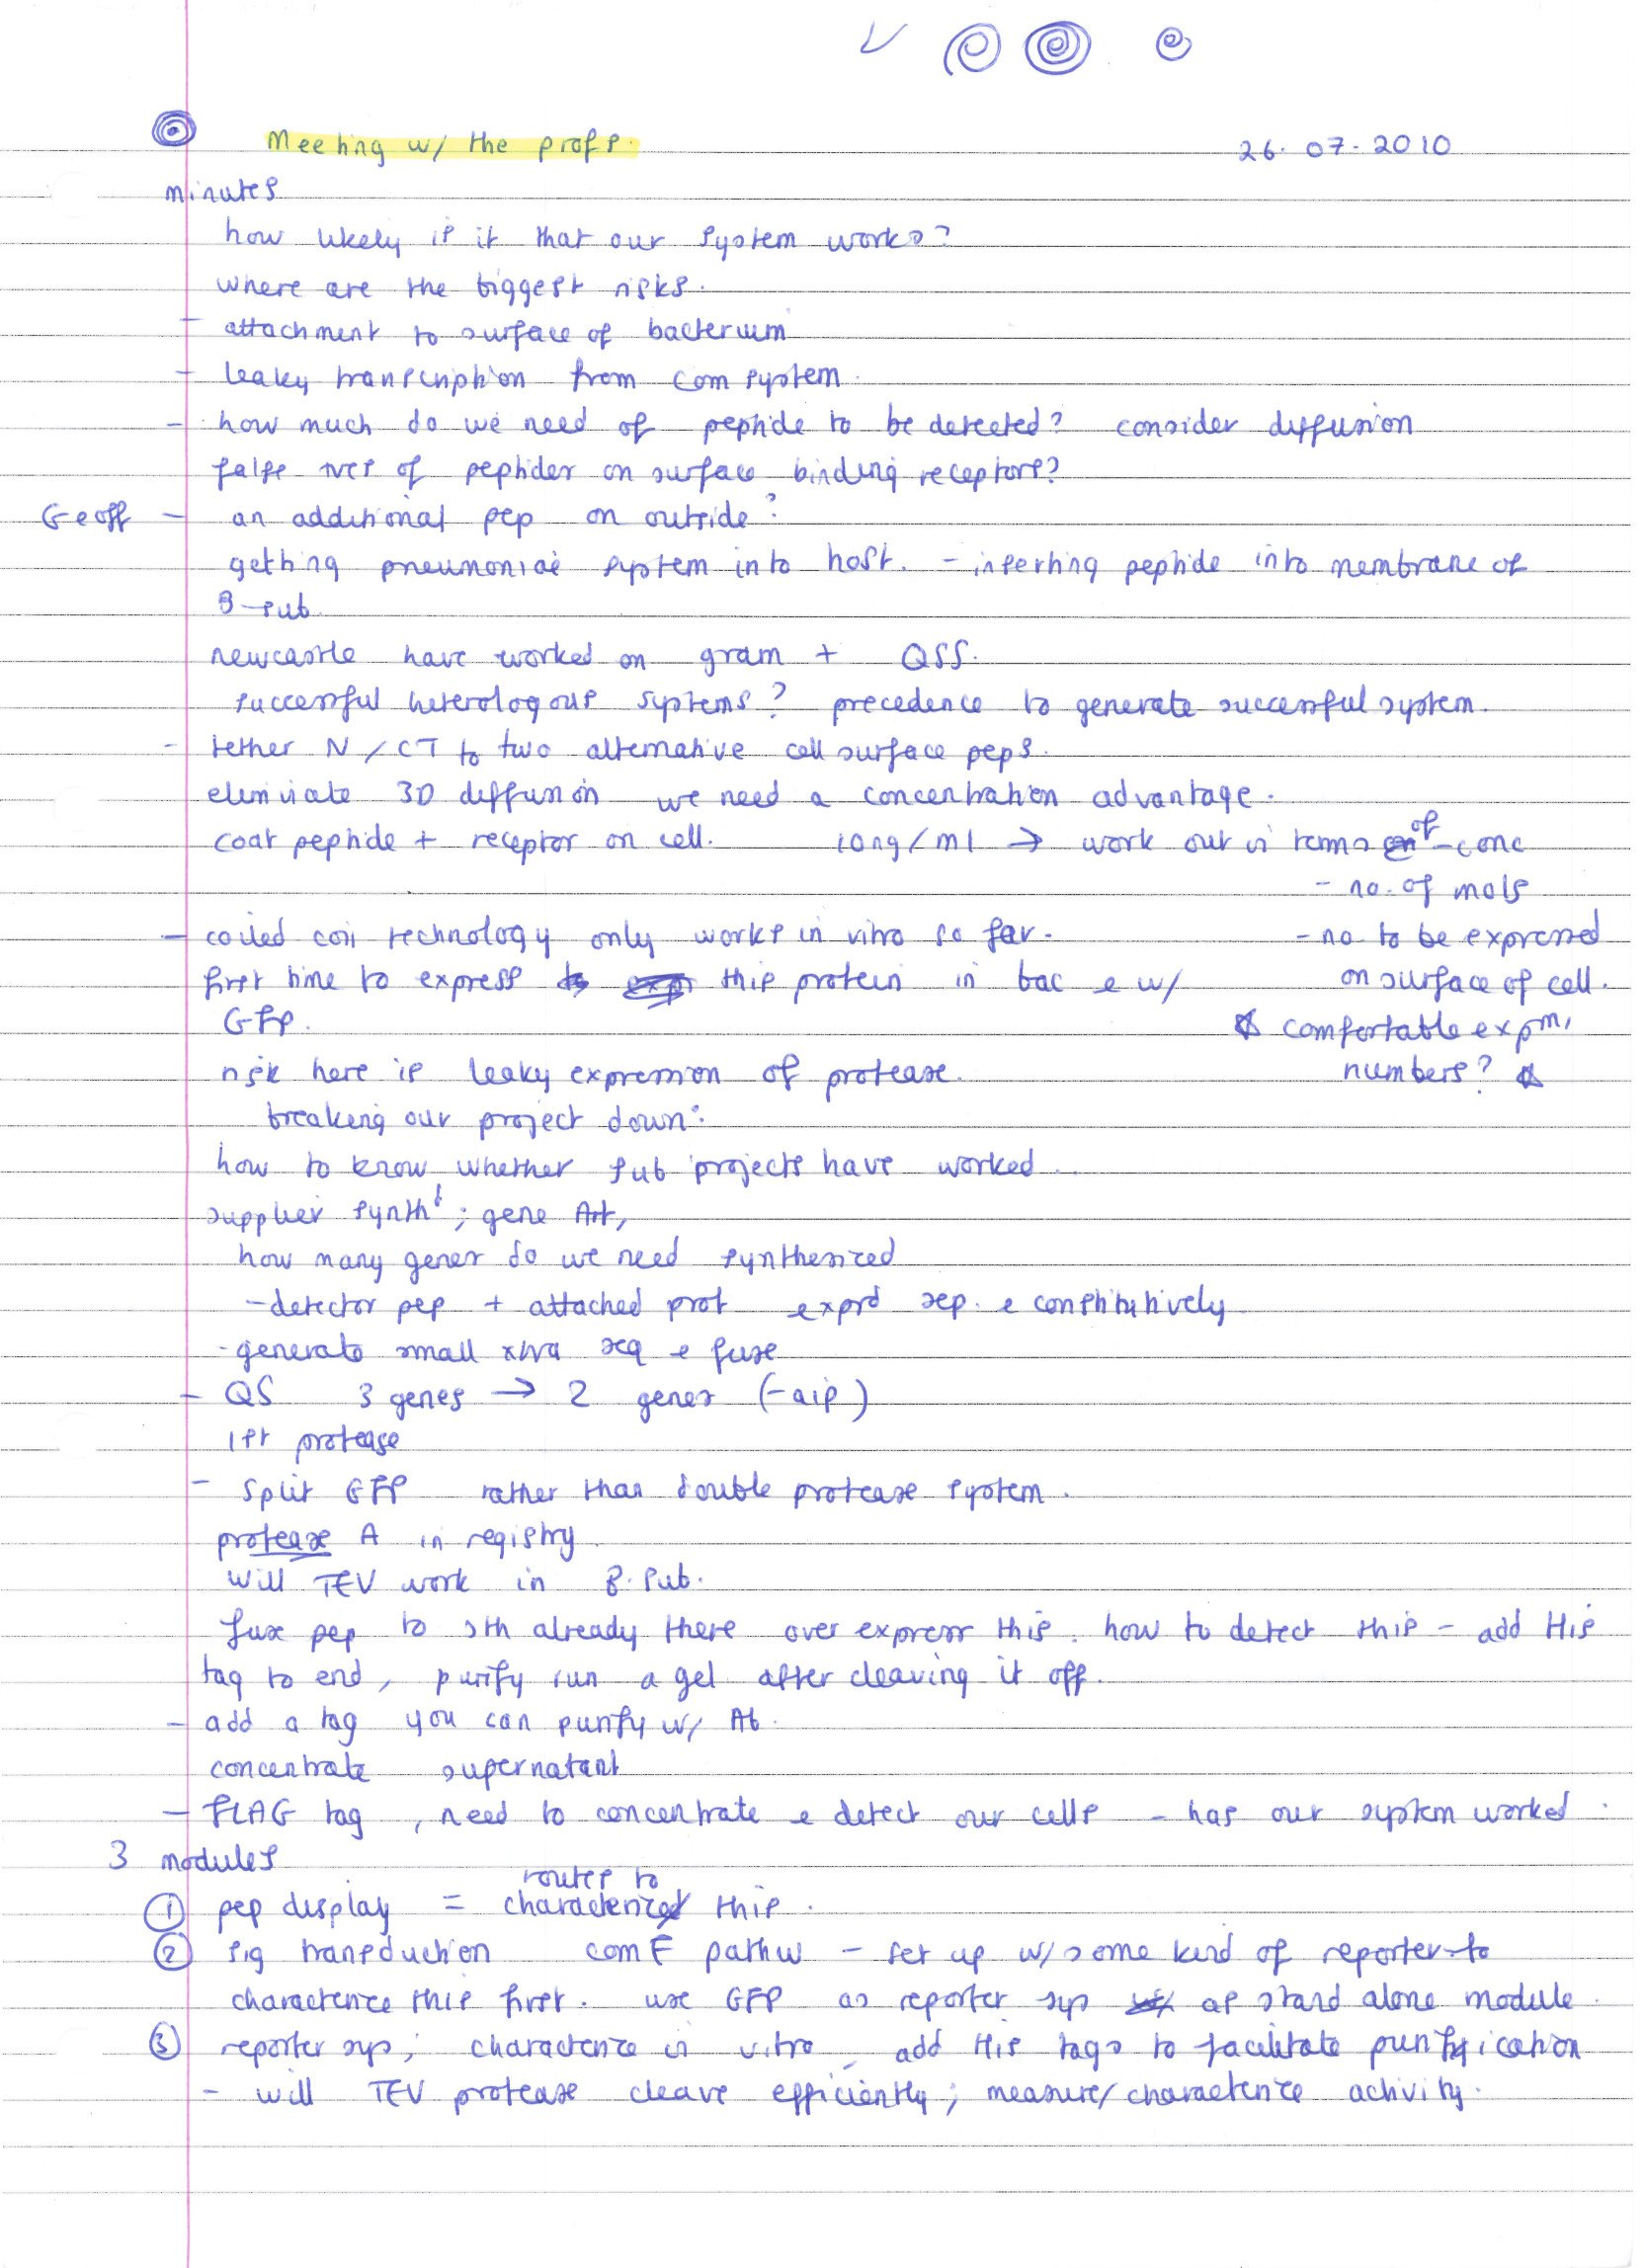 Meeting w/ the profs.
26.07.2010
minutes
how likely is it that our system works?
where are the biggest risks.
- attachment to surface of bacterium
- leaky transcription from com system.
- how much do we need of peptide to be detected? consider diffusion
false +ves of peptides on surface binding receptors?
Geoff - an additional pep on outside?
getting pneumoniae system into host. - inserting peptide into membrane of
B-sub.
newcastle have worked on gram + QSS.
successful heterologous systems? precedence to generate successful system.
- tether N/CT to two alternative cell surface peps.
eliminate 3D diffusion we need a concentration advantage.
coat peptide + receptor on cell. 10ng/ml → work out in terms of - conc
- no. of mols
- coiled coil technology only works in vitro so far.
- no. to be expressed
first time to express this protein in bac e w/
on surface of cell.
GFP.
comfortable expm,
risk here is leaky expression of protease.
numbers?
breaking our project down:
how to know whether sub projects have worked.
supplier synth; gene Art,
how many genes do we need synthesized
- detector pep + attached prot exprd sep. e constitutively
- generate small xtra seq e fuse
- QS 3 genes → 2 genes (-aip)
1st protease
- split GFP rather than double protease system.
protease A in registry
will TEV work in B. sub.
fuse pep to sth already there over express this. how to detect this - add His
tag to end, purify run a gel after cleaving it off.
- add a tag you can purify w/ Ab.
concentrate supernatant
- FLAG tag, need to concentrate e detect our cells - has our system worked.
3 modules
routes to
① pep display = characterize this.
② sig transduction comE pathw - set up w/ some kind of reporter to
characterize this first. use GFP as reporter sys as stand alone module.
③ reporter sys; characterize in vitro, add His tags to facilitate purification
- will TEV protease cleave efficiently; measure/characterize activity.